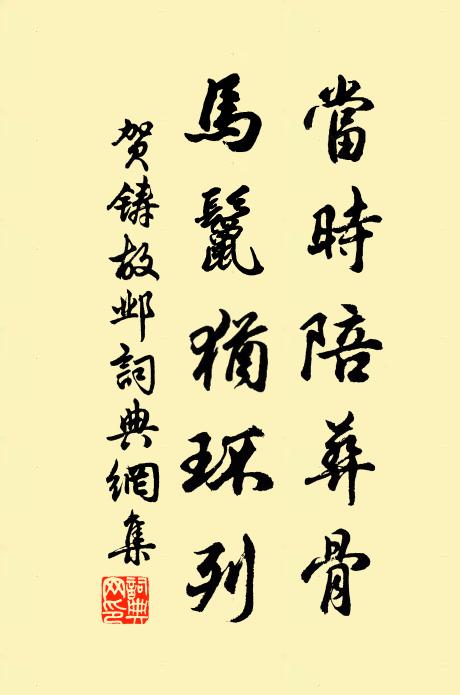 當時陪葬骨
馬鬣猶环列
贺铸故邺詞典網集
詞典网印